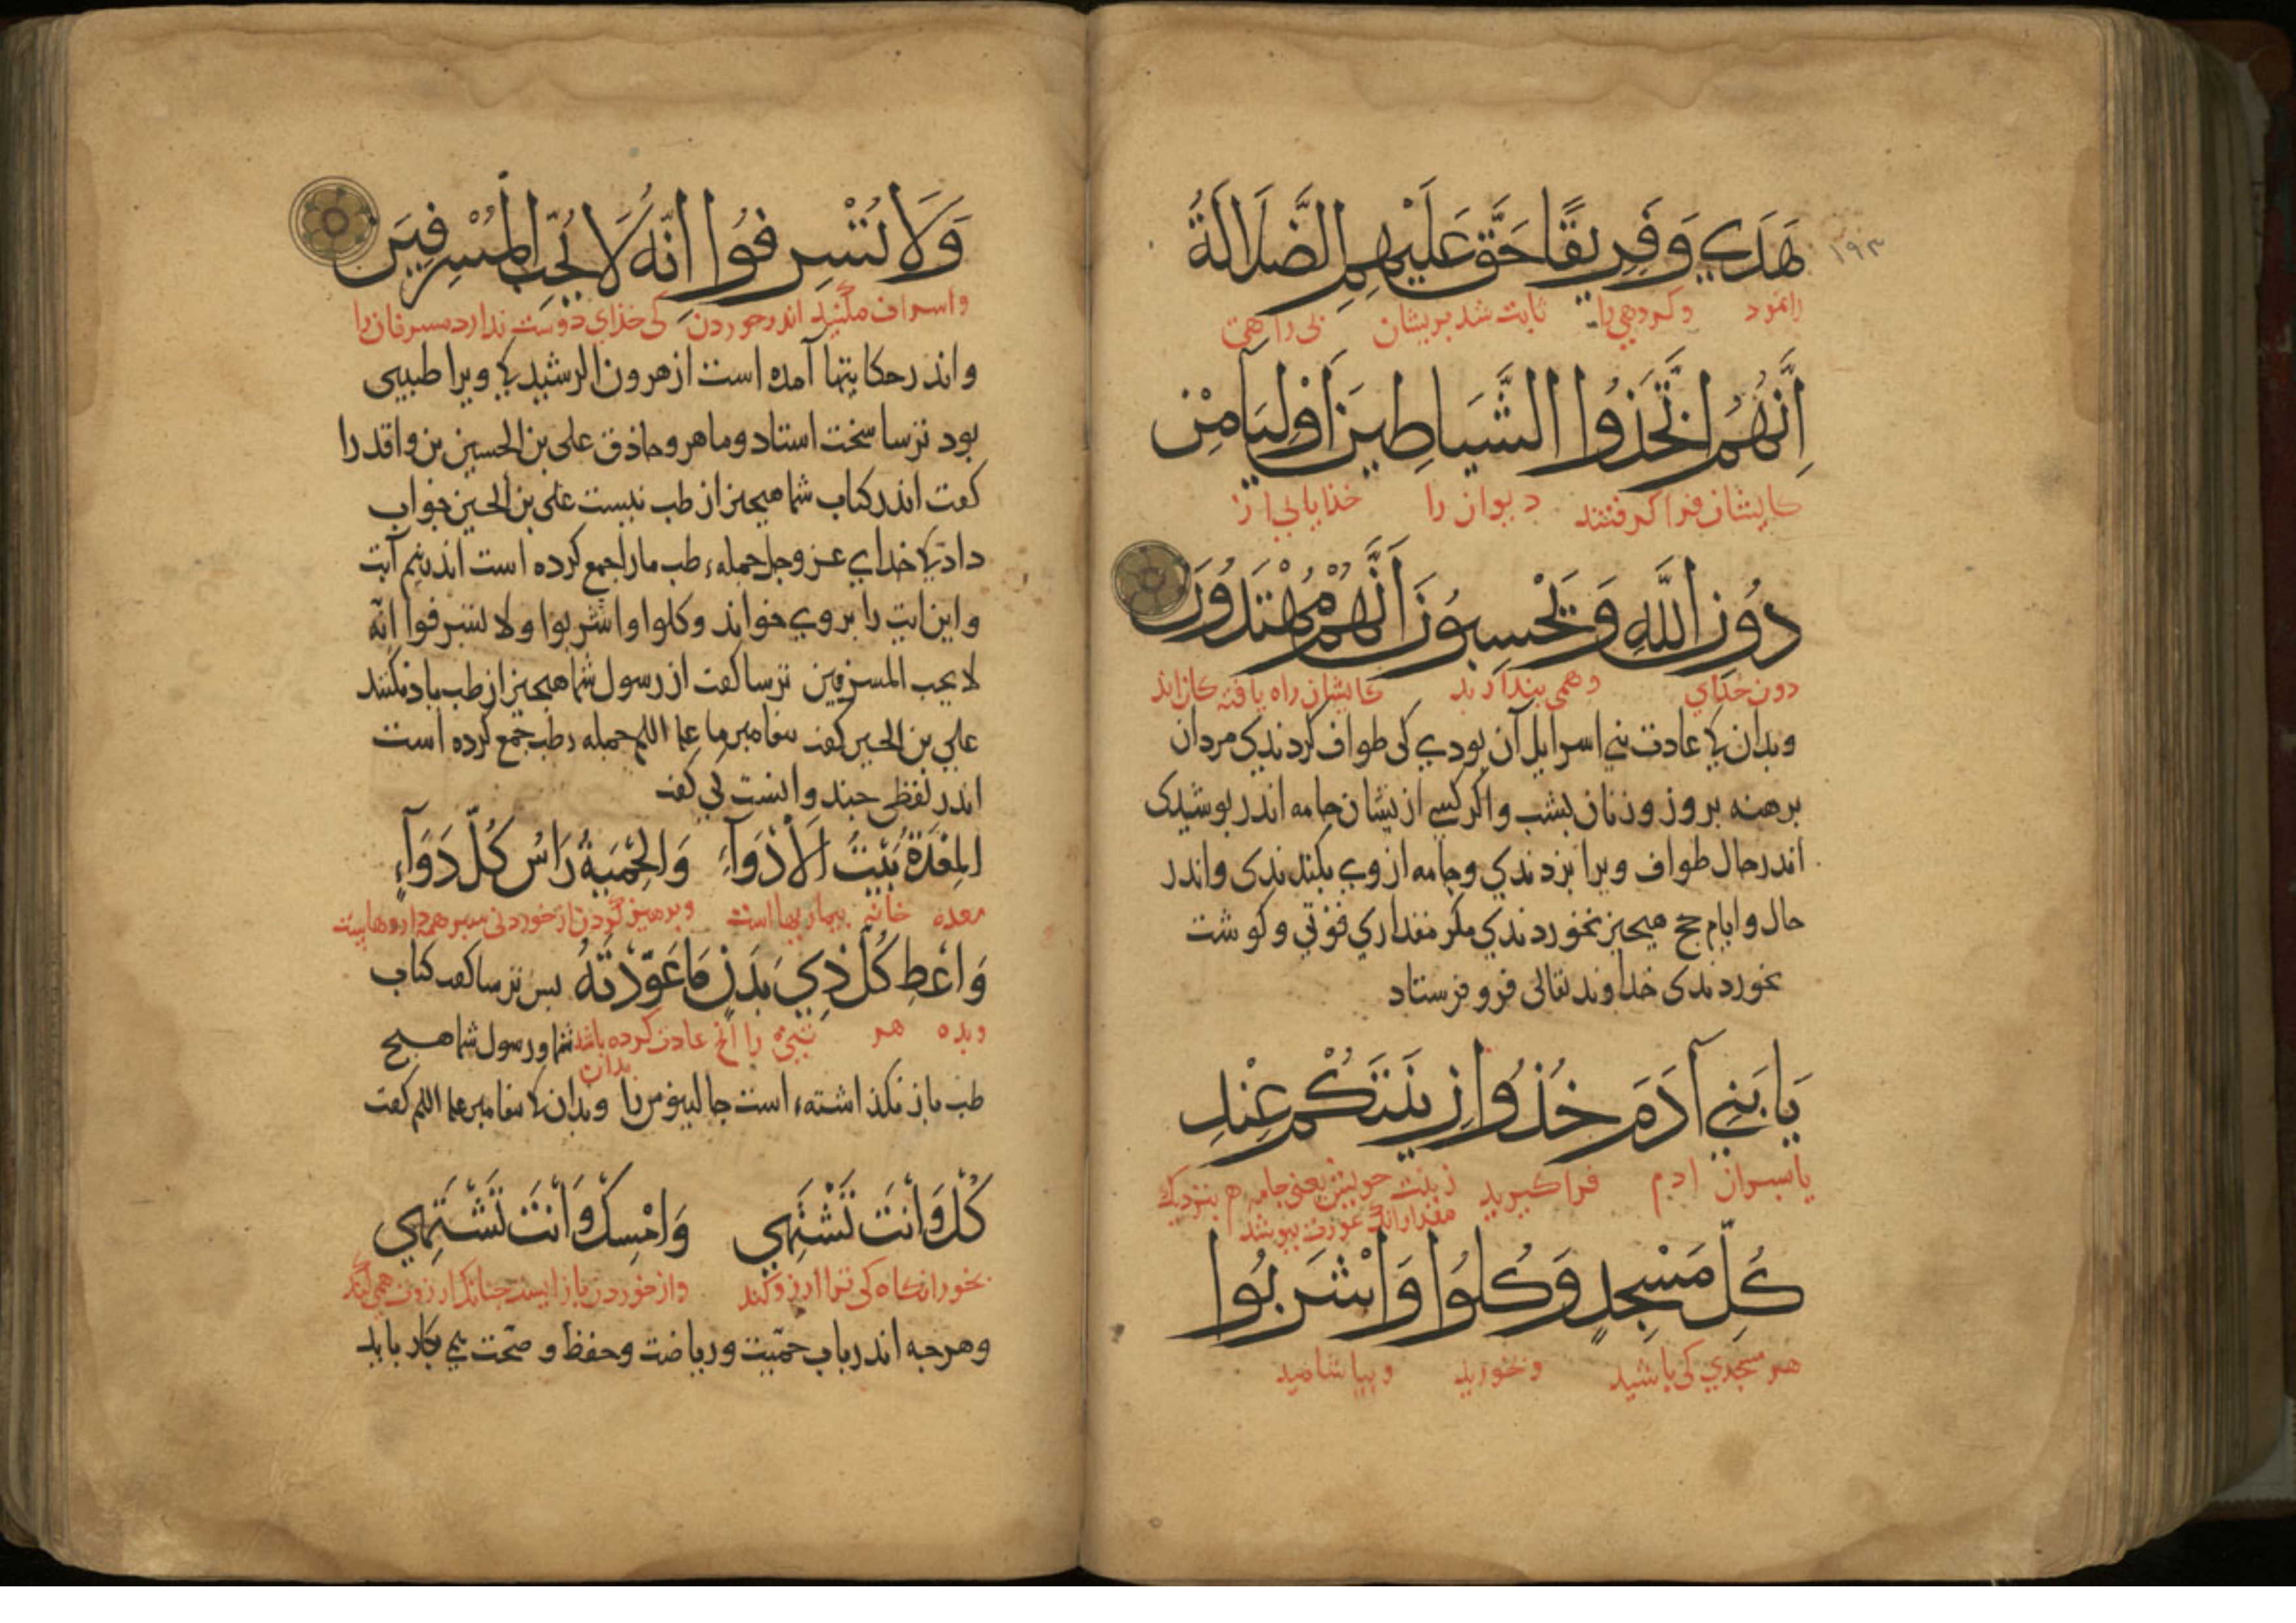 ١٩٣
هَدَي وَفَرِيقًا حَقَّ عَلَيْهِمُ الضَّلَالَةُ
راه نمود وكروهي را ثابت شد بريشان بى راهى
اِنَّهُمُ اتَّخَذُوا الشَّيَاطِينَ اَوْلِيَآءَ مِنْ
كايشان فراكرفتند ديوان را خدايانى از
دُونِ اللَّهِ وَيَحْسِبُونَ اَنَّهُمْ مُهْتَدُونَ
دون خداي وهمى بندارند كايشان راه يافته كان اند
وبدان كا عادت بني اسرايل آن بودي كى طواف كردندى مردان
برهنه بروز وزنان بشب واكر كسي ازيشان جامه اندر بوشيدى
اندر حال طواف ويرا بزدندي وجامه از وي بكندندى واندر
حال وايام حج هيجيز نخوردندي مكر مقداري قوتي وكوشت
نخوردندى خداوند تعالى فرو فرستاد
يَا بَنِي آدَمَ خُذُوا زِينَتَكُمْ عِنْدَ
يا بسران ادم فراكيريد زينت خويش يعنى جامه بنزديك
مقدار انك عورت ببوشد
كُلِّ مَسْجِدٍ وَكُلُوا وَاشْرَبُوا
هر مسجدي كى باشيد وبخوريد وبياشاميد
وَلَا تُسْرِفُوا اِنَّهُ لَا يُحِبُّ الْمُسْرِفِينَ
واسراف مكنيد اندر خوردن كى خذاي دوست ندارد مسرفان را
واندر حكايتها آمده است از هرون الرشيد كا ويرا طبيبى
بود ترسا سخت استاد وماهر وحاذق على بن الحسين بن واقد را
كفت اندر كتاب شما هيجيز از طب نيست على بن الحسين جواب
داد كا خداي عز وجل جمله طب ما را جمع كرده است اندر نيم آيت
واين ايت را بروي خواند وكلوا واشربوا ولا تسرفوا انّه
لا يحب المسرفين ترسا كفت از رسول شما هيجيز از طب ياد نكنند
علي بن الحسين كفت بيغامبر ما عليه السلم جمله طب جمع كرده است
اندر لفظى جند وانست كى كفت
الْمِعْدَةُ بَيْتُ الْأَدْوَآءِ وَالْحِمْيَةُ رَاسُ كُلِّ دَوَآءٍ
معده خانه بيماريها است وبرهيز كردن از خوردنى سر همه داروهاست
وَاَعْطِ كُلَّ ذِي بَدَنٍ مَا عَوَّدْتَهُ بس ترسا كفت كتاب
وبده هر تنى را انج عادت كرده باشد بدان شما ورسول شما هيج
طب باز نكذاشته است جالينوس را وبدان كا بيغامبر عليه السلم كفت
كُلْ وَأَنْتَ تَشْتَهِي وَامْسِكْ وَأَنْتَ تَشْتَهِي
بخور انكاه كى ترا ارزو كند واز خوردن باز ايست جنانك ارزوت همى كند
وهرجه اندر باب حمّيت ورياضت وحفظ وصحّت بي بكار بايد